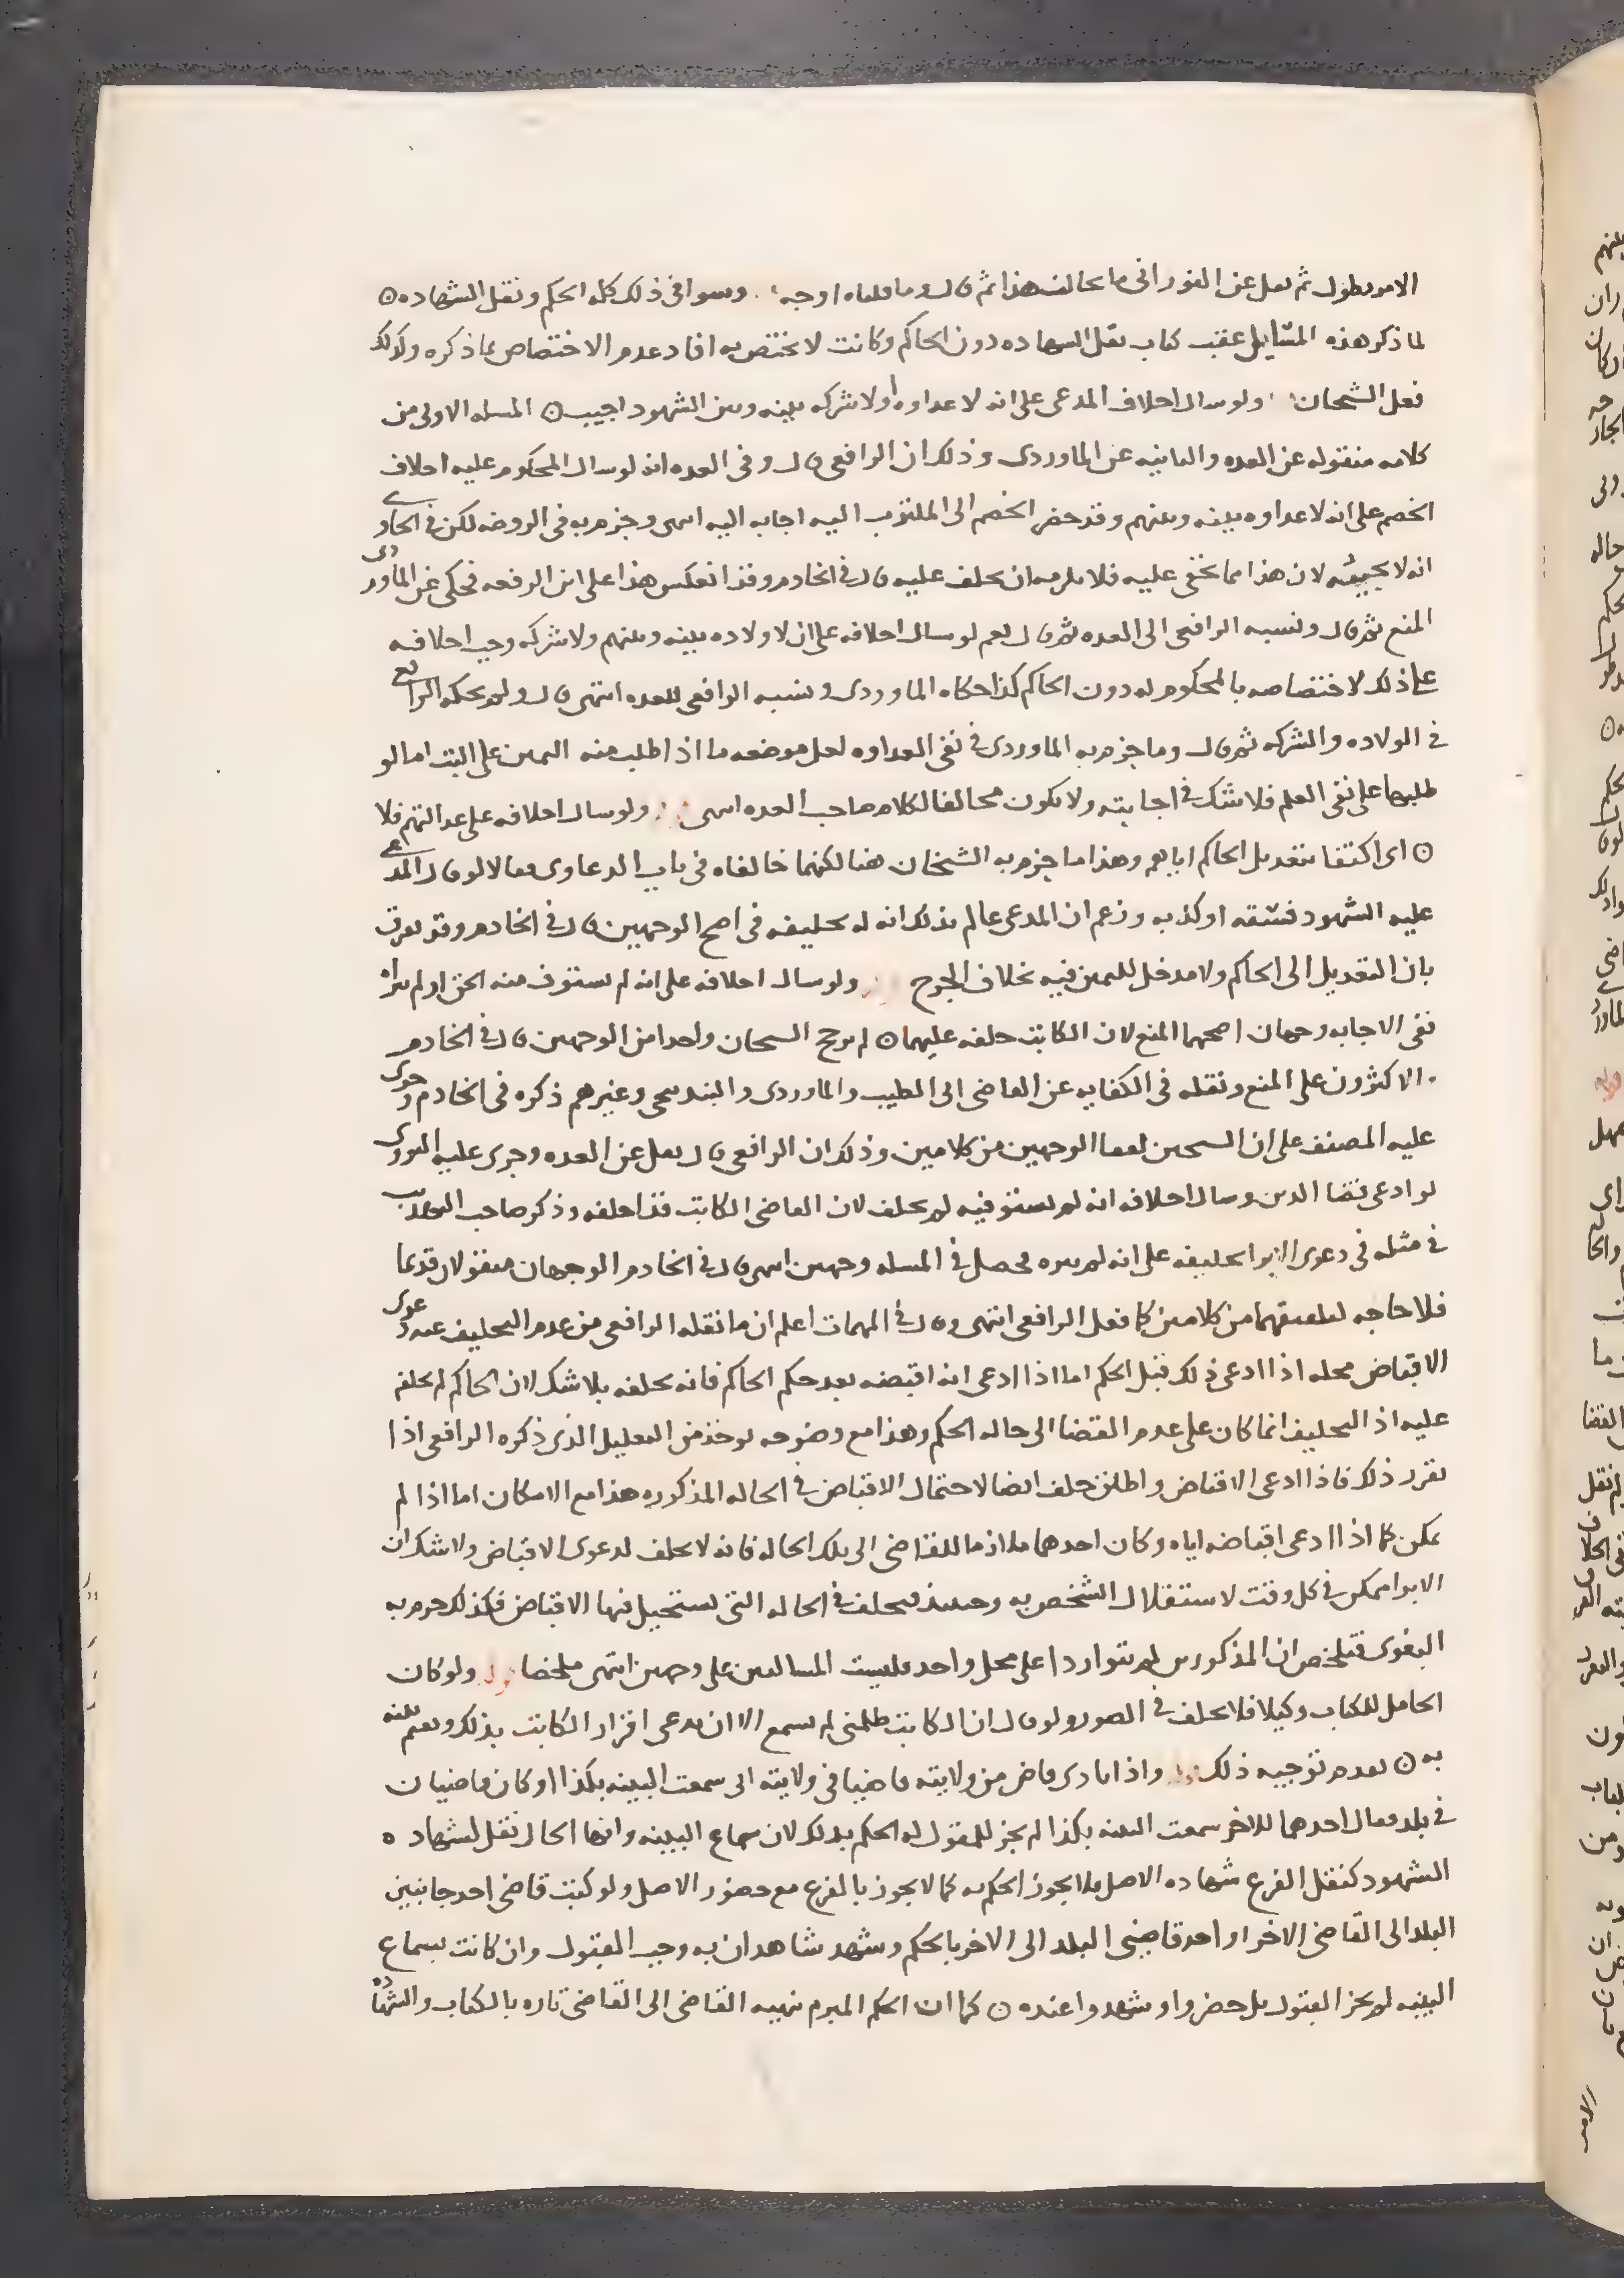 الامر يطول ثم نقل عن الفوراني ما يخالف هذا ثم قال وما قلناه اوجه وسوا في ذلك كله الحكم ونقل الشهاده ه
لما ذكر هذه المسايل عقب كتاب نقل الشهاده دون الحاكم وكانت لا تختص به افاد عدم الاختصاص بما ذكره وكذلك
فعل الشيخان ولو سال احلاف المدعى على انه لا عداوه او لا شركه بينه وبين الشهود اجيب ه المسله الاولى من
كلامه منقوله عن العده والثانيه عن الماوردي وذلك ان الرافعي قال وفي العده انه لو سال المحكوم عليه احلاف
الخصم على انه لا عداوه بينه وبينهم وقد حضر الخصم الى المكتوب اليه اجابه اليه انتهى وجزم به في الروضه لكن في الحاوي
انه لا يجيبه لان هذا مما يخفى عليه فلا يلزمه ان يحلف عليه قال في الخادم وقد انعكس هذا على ابن الرفعه فحكى عن الماوردي
المنع ثم قال ونسبه الرافعي الى العده ثم قال نعم لو سال احلافه على ان لا ولاده بينه وبينهم ولا شركه وجب احلافه
على ذلك لاختصاصه بالمحكوم له دون الحاكم كذا حكاه الماوردي ونسبه الرافعي للعده انتهى قال ولم يحكه الرافعي
في الولاده والشركه ثم قال وما جزم به الماوردي في نفي العداوه لعل موضعه ما اذا طلب منه اليمين على البت اما لو
طلبها على نفي العلم فلا شك في اجابته ولا يكون مخالفا لكلام صاحب العده انتهى ولو سال احلافه على عدالتهم فلا
ه اى اكتفا بتعديل الحاكم اياهم وهذا ما جزم به الشيخان هنا لكنهما خالفاه في باب الدعاوى فقالا لو قال المدعى
عليه الشهود فسقه او كذبه وزعم ان المدعى عالم بذلك انه له تحليفه في اصح الوجهين قال في الخادم وقد يفرق
بان التعديل الى الحاكم ولا مدخل لليمين فيه بخلاف الجرح ولو سال احلافه على انه لم يستوف منه الحق او لم يبراه
ففي الاجابه وجهان اصحهما المنع لان الكاتب حلفه عليهما ه لم يرجح الشيخان واحدا من الوجهين قال في الخادم
الاكثرون على المنع ونقله في الكفايه عن القاضي ابي الطيب والماوردي والبندنيجي وغيرهم ذكره في الخادم وجرى
عليه المصنف على ان الشيخين لفقا الوجهين من كلامين وذلك ان الرافعي قال نقل عن العده وجرى عليه النووي
لو ادعى قضا الدين وسال احلافه انه لم يستوفيه لم يحلف لان القاضي الكاتب قد احلفه وذكر صاحب التهذيب
في مثله في دعوى الابرا تحليفه على انه لم يبره فحصل في المسله وجهين انتهى قال في الخادم الوجهان منقولان قديما
فلا حاجه لتلفيقهما من كلامين كما فعل الرافعي انتهى وقال في المهمات اعلم ان ما نقله الرافعي من عدم التحليف عند دعوى
الاقباض محله اذا ادعى ذلك قبل الحكم اما اذا ادعى انه اقبضه بعد حكم الحاكم فانه يحلفه بلا شك لان الحاكم لم يحلفه
عليه اذ التحليف انما كان على عدم القضا الى حاله الحكم وهذا مع وضوحه يوخذ من التعليل الذى ذكره الرافعي اذا
تقرر ذلك فاذا ادعى الاقباض واطلق حلف ايضا لاحتمال الاقباض في الحاله المذكوره هذا مع الامكان اما اذا لم
يمكن كما اذا ادعى اقباضه اياه وكان احدهما ملازما للقاضي الى تلك الحاله فانه لا يحلف لدعوى الاقباض ولا شك ان
الابرا ممكن في كل وقت لاستقلال الشخص به وحينئذ فيحلف في الحاله التي يستحيل فيها الاقباض فكذلك جزم به
البغوي فتلخص ان المذكورين لم يتواردا على محل واحد فليست المسالتين على وجهين انتهى ملخصا ولو كان
الحامل للكتاب وكيلا فلا يحلف في الصور ولو قال ان الكاتب ظلمني لم يسمع الا ان يدعى اقرار الكاتب بذلك ويقيم بينه
به ه تقدم توجيه ذلك واذا نادى قاض من ولايته قاضيا في ولايته انى سمعت البينه بكذا او كان قاضيان
في بلد فقال احدهما للاخر سمعت البينه بكذا لم يجز للمقول له الحكم بذلك لان سماع البينه وانها الحال نقل لشهاده
الشهود كنقل الفرع شهاده الاصل فلا يجوز الحكم به كما لا يجوز بالفرع مع حضور الاصل ولو كتب قاضى احد جانبين
البلد الى القاضى الاخر او احد قاضيي البلد الى الاخر بالحكم وشهد شاهدان به وجب القبول وان كانت بسماع
البينه لم يجز القبول بل حضروا وشهدوا عنده ه كما ان الحكم المبرم نهيه القاضى الى القاضى تاره بالكتاب والشهاده